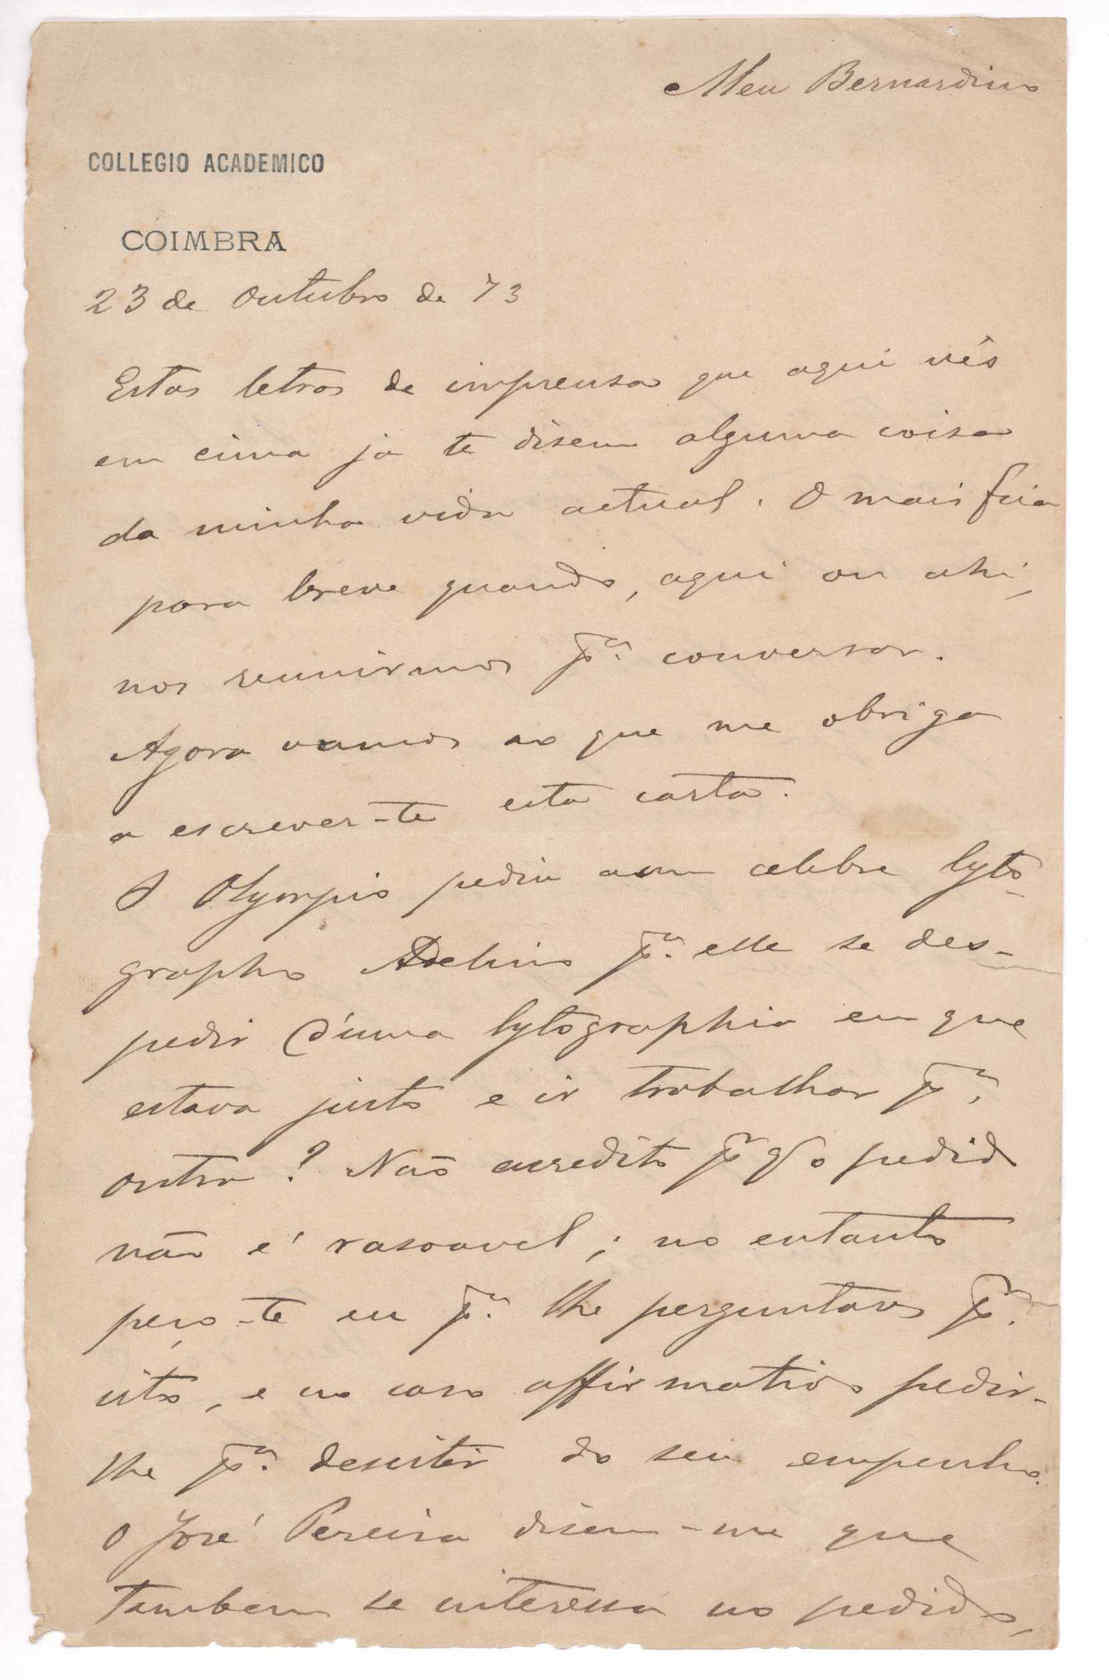 Meu Bernardino
COLLEGIO ACADEMICO
COIMBRA
23 de Outubro de 73
Estas letras de imprensa que aqui vês
em cima ja te disem alguma coisa
da minha vida actual. O mais fica
para breve quando, aqui ou ahi,
nos reunirmos pª. conversar.
Agora vamos ao que me obriga
a escrever-te esta carta.
O Olympio pediu a um celebre lyto-
grapho Adelino pª. elle se des-
pedir d'uma lytographia em que
estava justo e ir trabalhar pª.
outra? Não acredito pr q o pedido
não é rasoavel; no entanto
peço-te eu pª. lhe perguntares pª.
isto, e no caso affirmativo pedir-
lhe pª. desistir do seu empenho.
O José Pereira disem-me que
tambem se interessa no pedido,